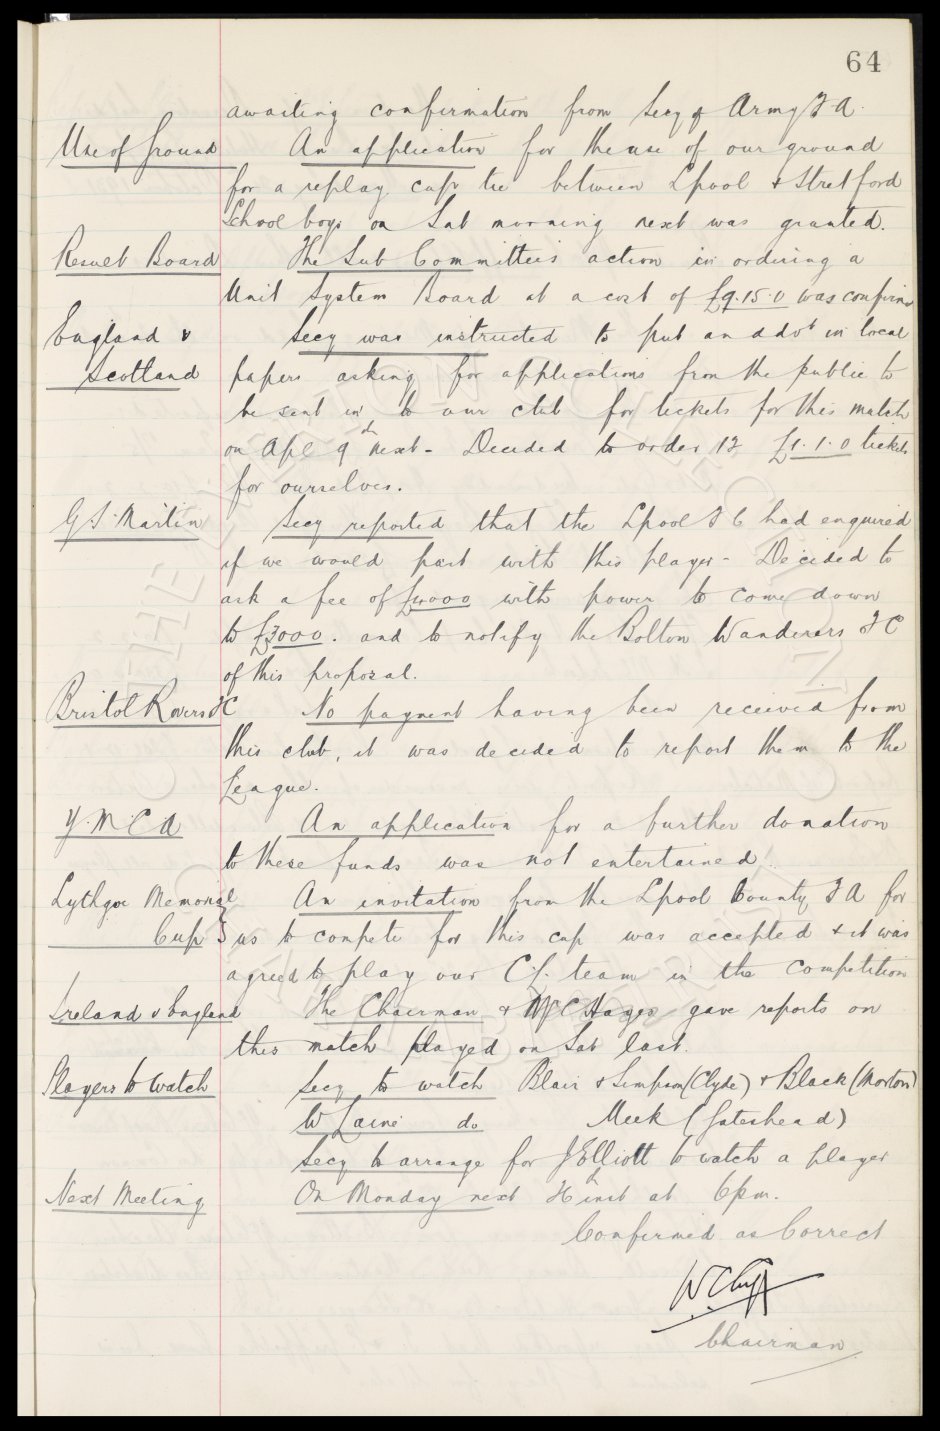 64
awaiting confirmation from Secy of Army F A.
Use of Ground An application for the use of our ground
for a replay cup tie between Lpool & Stretford
School boys on Sat morning next was granted.
Result Board The Sub Committees action in ordering a
Unit System Board at a cost of £9.15.0 was confirmd
England v Secy was instructed to put an advt in local
Scotland papers asking for applications from the public to
be sent in to our club for tickets for this match
on Apl 9th next - Decided to order 12 £1.1.0 tickets
for ourselves.
G S Martin Secy reported that the Lpool F C had enquired
if we would part with this player - Decided to
ask a fee of £4000 with power to come down
to £3000. and to notify the Bolton Wanderers F C
of this proposal.
Bristol Rovers F C No payment having been received from
this club, it was decided to report them to the
League.
Y.M.C A An application for a further donation
to these funds was not entertained.
Lythgoe Memorial An invitation from the Lpool County F A for
Cup us to compete for this cup was accepted & it was
agreed to play our C L. team in the competition
Ireland v England The Chairman & W C Hayes gave reports on
this match played on Sat last.
Players to Watch Secy to watch Blair & Simpson (Clyde) & Black (Morton)
W Laine do Meek (Gateshead)
Secy to arrange for J Elliott to watch a player
Next Meeting On Monday next inst at 6pm.
Confirmed as Correct
W C Cuff
Chairman